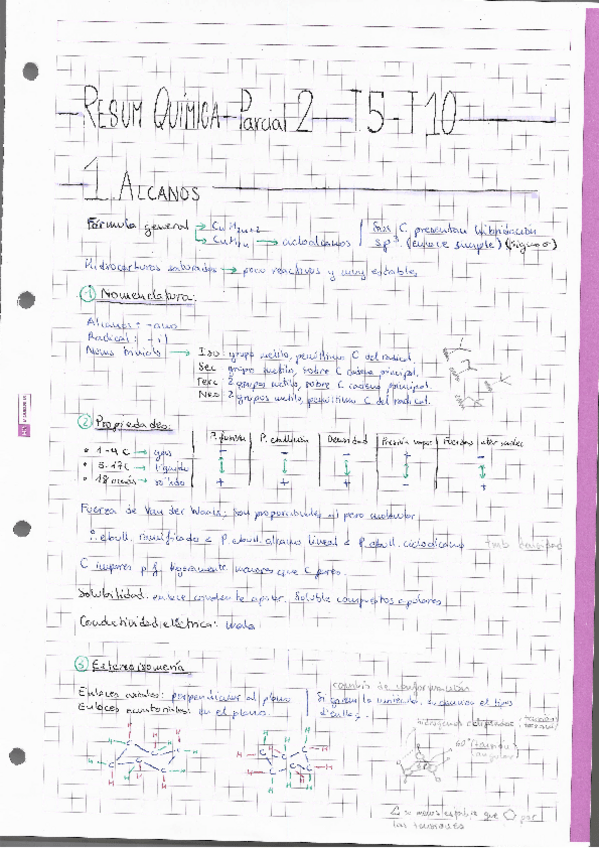 RESUM QUÍMICA Parcial 2 T5-T10
1. ALCANOS
Fórmula general → CnH2n+2
→ CnH2n → cicloalcanos
C presentan hibridación
sp3 (enlace simple) (sigma σ)
Hidrocarburos saturados → poco reactivos y muy estables
1 Nomenclatura:
Alcanos: -ano
Radical: -il
Iso: grupo metilo, penúltimo C del radical.
Sec: grupo metilo, sobre C cadena principal.
Terc: 2 grupos metilo, sobre C cadena principal.
Neo: 2 grupos metilo, penúltimo C del radical.
2 Propiedades:
P. fusión P. ebullición Densidad Presión vapor Fuerzas
1-4 C → gas - - - + -
5-17C → líquido
18 → sólido + + + - +
Fuerza de Van der Waals: son proporcionales al peso molecular
P. ebull. ramificado < P. ebull. alcano lineal < P. ebull. cicloalcano tmb densidad
C impares p.f. ligeramente menores que C pares.
Solubilidad: enlace covalente apolar. Soluble compuestos apolares
Conductividad eléctrica: mala
3 Estereoisomería
Enlaces axiales: perpendicular al plano
Enlaces ecuatoriales: en el plano.
cambio de conformación
Si giramos la molécula, cambian el tipo
d'enllaç.
hidrógenos eclipsados
60° (tensión
angular)
menos estable que
las tensiones